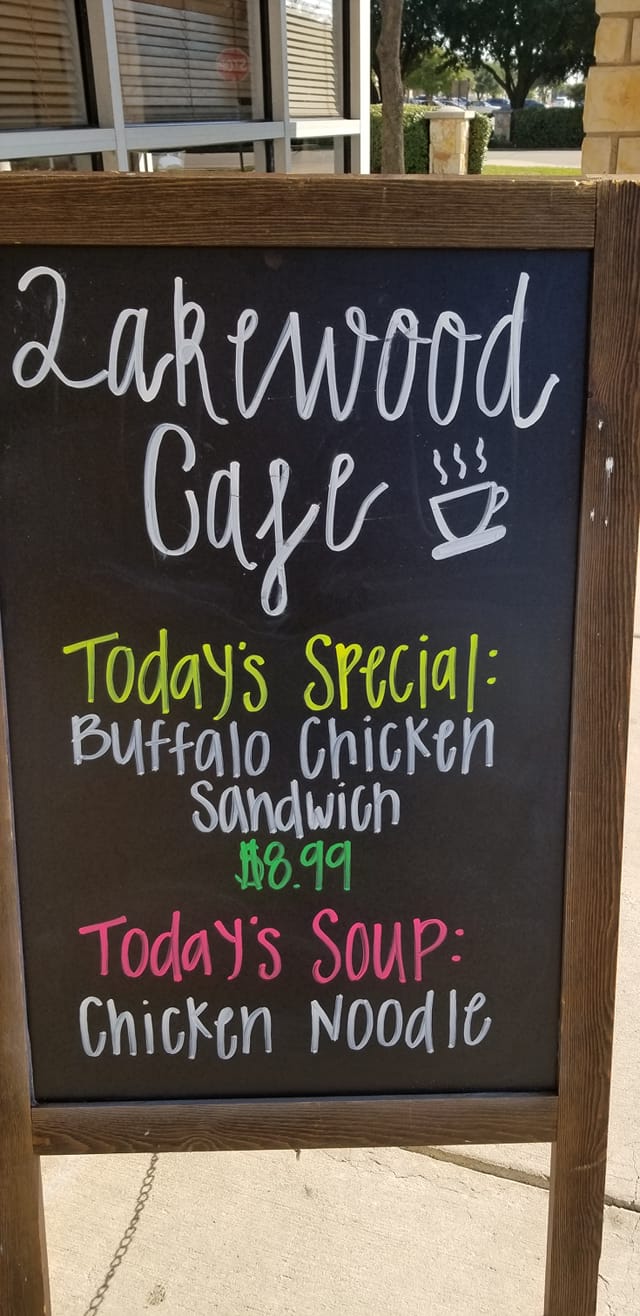 Lakewood
Cafe
Today's Special:
Buffalo Chicken
Sandwich
$8.99
Today's Soup:
Chicken Noodle